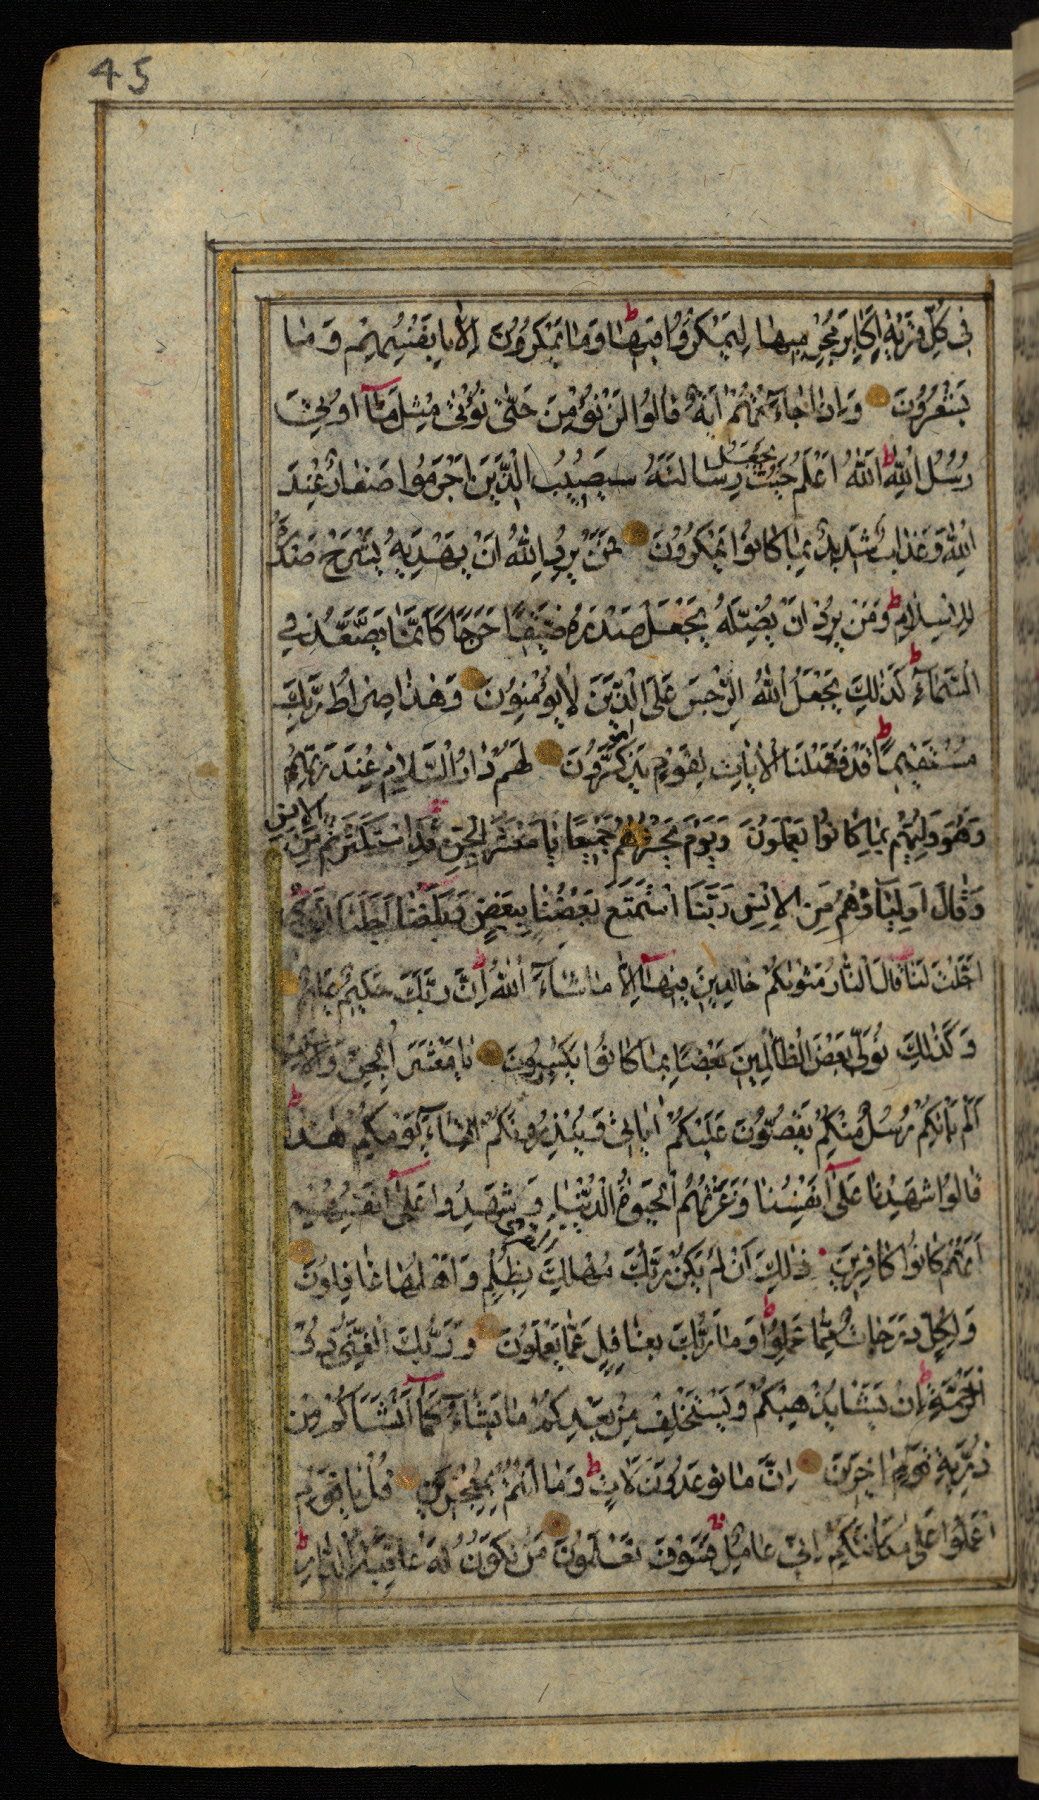 45
فى كُلِّ قَرْيَةٍ اَكَابِرَ مُجْرِمِيهَا لِيَمْكُرُوا فِيهَا ط وَمَا يَمْكُرُونَ اِلَّا بِاَنْفُسِهِمْ وَمَا
يَشْعُرُونَ وَاِذَا جَاءَتْهُمْ اٰيَةٌ قَالُوا لَنْ نُؤْمِنَ حَتّٰى نُؤْتٰى مِثْلَ مَا اُوتِىَ
رُسُلُ اللّٰهِ ط اَللّٰهُ اَعْلَمُ حَيْثُ يَجْعَلُ رِسَالَتَهُ سَيُصِيبُ الَّذِينَ اَجْرَمُوا صَغَارٌ عِنْدَ
اللّٰهِ وَعَذَابٌ شَدِيدٌ بِمَا كَانُوا يَمْكُرُونَ فَمَنْ يُرِدِ اللّٰهُ اَنْ يَهْدِيَهُ يَشْرَحْ صَدْرَهُ
لِلْاِسْلَامِ ط وَمَنْ يُرِدْ اَنْ يُضِلَّهُ يَجْعَلْ صَدْرَهُ ضَيِّقًا حَرَجًا كَاَنَّمَا يَصَّعَّدُ فِى
السَّمَاءِ ط كَذٰلِكَ يَجْعَلُ اللّٰهُ الرِّجْسَ عَلَى الَّذِينَ لَا يُؤْمِنُونَ وَهٰذَا صِرَاطُ رَبِّكَ
مُسْتَقِيمًا ط قَدْ فَصَّلْنَا الْاٰيَاتِ لِقَوْمٍ يَذَّكَّرُونَ لَهُمْ دَارُ السَّلَامِ عِنْدَ رَبِّهِمْ
وَهُوَ وَلِيُّهُمْ بِمَا كَانُوا يَعْمَلُونَ وَيَوْمَ يَحْشُرُهُمْ جَمِيعًا يَا مَعْشَرَ الْجِنِّ قَدِ اسْتَكْثَرْتُمْ مِنَ الْاِنْسِ
وَقَالَ اَوْلِيَاؤُهُمْ مِنَ الْاِنْسِ رَبَّنَا اسْتَمْتَعَ بَعْضُنَا بِبَعْضٍ وَبَلَغْنَا اَجَلَنَا الَّذِى
اَجَّلْتَ لَنَا قَالَ النَّارُ مَثْوٰيكُمْ خَالِدِينَ فِيهَا اِلَّا مَا شَاءَ اللّٰهُ ط اِنَّ رَبَّكَ حَكِيمٌ عَلِيمٌ
وَكَذٰلِكَ نُوَلِّى بَعْضَ الظَّالِمِينَ بَعْضًا بِمَا كَانُوا يَكْسِبُونَ يَا مَعْشَرَ الْجِنِّ وَالْاِنْسِ
اَلَمْ يَاْتِكُمْ رُسُلٌ مِنْكُمْ يَقُصُّونَ عَلَيْكُمْ اٰيَاتِى وَيُنْذِرُونَكُمْ لِقَاءَ يَوْمِكُمْ هٰذَا ط
قَالُوا شَهِدْنَا عَلٰى اَنْفُسِنَا وَغَرَّتْهُمُ الْحَيٰوةُ الدُّنْيَا وَشَهِدُوا عَلٰى اَنْفُسِهِمْ
اَنَّهُمْ كَانُوا كَافِرِينَ ذٰلِكَ اَنْ لَمْ يَكُنْ رَبُّكَ مُهْلِكَ الْقُرٰى بِظُلْمٍ وَاَهْلُهَا غَافِلُونَ
وَلِكُلٍّ دَرَجَاتٌ مِمَّا عَمِلُوا ط وَمَا رَبُّكَ بِغَافِلٍ عَمَّا يَعْمَلُونَ وَرَبُّكَ الْغَنِىُّ ذُو
الرَّحْمَةِ ط اِنْ يَشَاْ يُذْهِبْكُمْ وَيَسْتَخْلِفْ مِنْ بَعْدِكُمْ مَا يَشَاءُ كَمَا اَنْشَاَكُمْ مِنْ
ذُرِّيَّةِ قَوْمٍ اٰخَرِينَ اِنَّ مَا تُوعَدُونَ لَاٰتٍ ط وَمَا اَنْتُمْ بِمُعْجِزِينَ قُلْ يَا قَوْمِ
اعْمَلُوا عَلٰى مَكَانَتِكُمْ اِنِّى عَامِلٌ فَسَوْفَ تَعْلَمُونَ مَنْ تَكُونُ لَهُ عَاقِبَةُ الدَّارِ ط